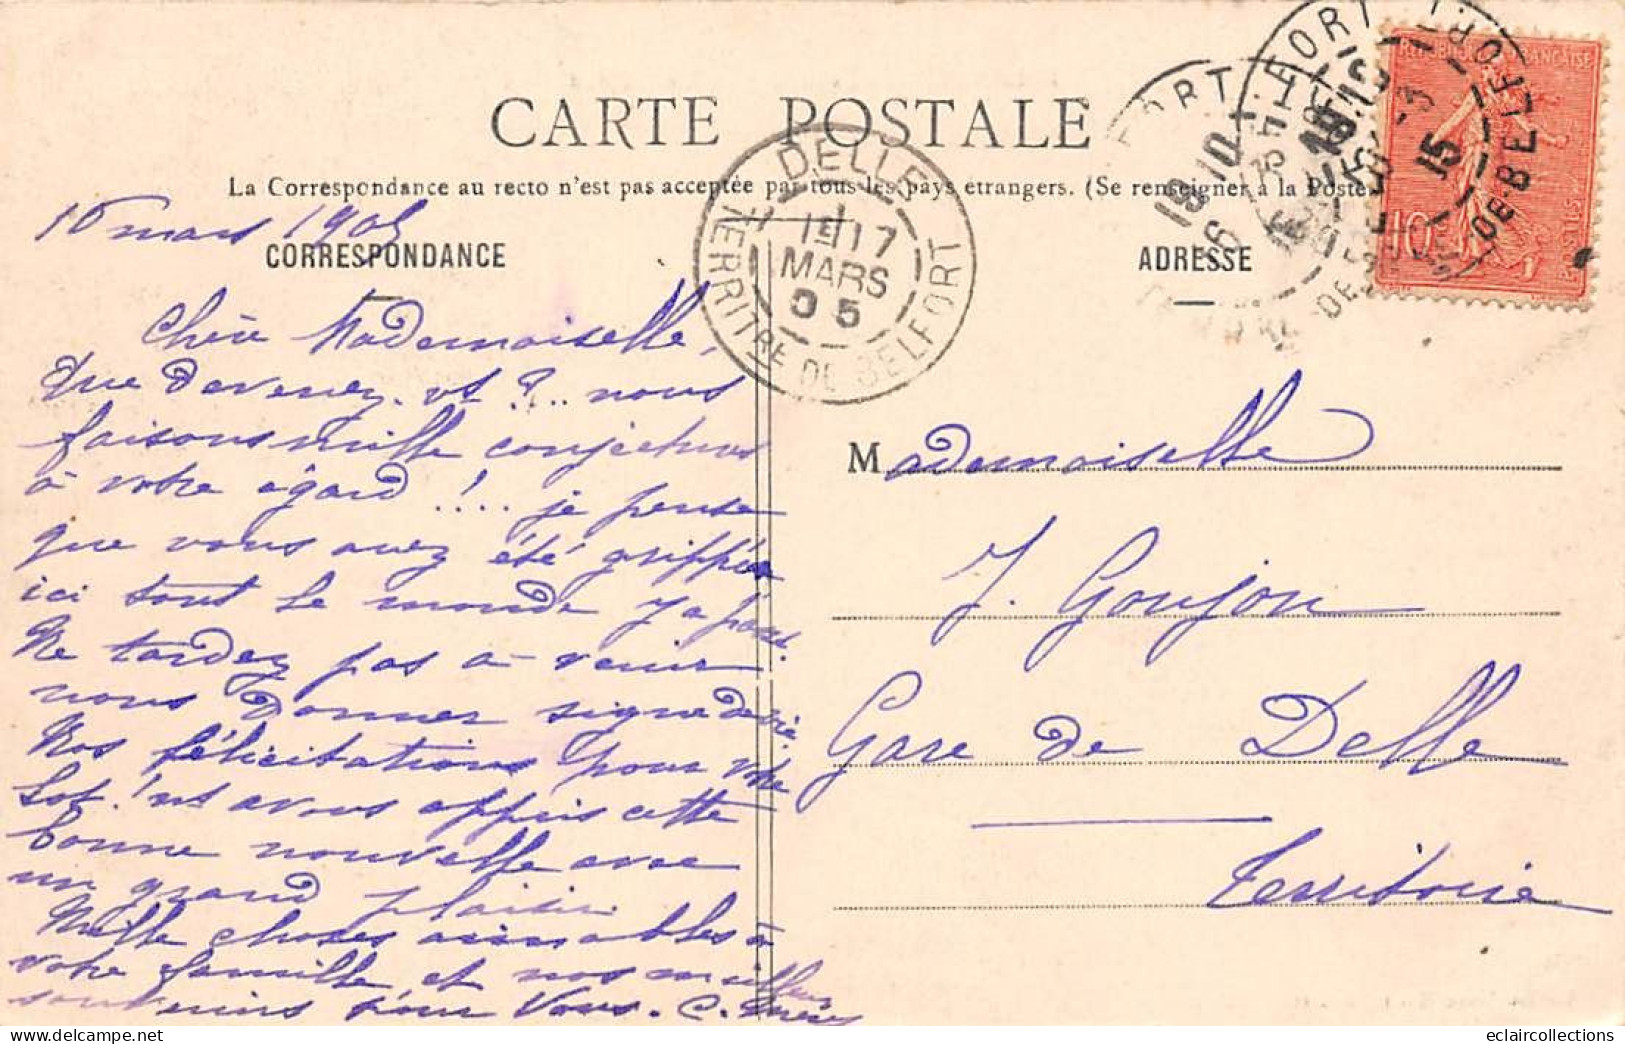 CARTE POSTALE
La Correspondance au recto n'est pas acceptée par tous les pays etrangers. (Se renseigner à la Poste
16 mars 1905
CORRESPONDANCE
Chère Mademoiselle,
Que devenez. vs ?.. nous
faisons mille conjectures
à votre égard !.... je pense
que vous avez été grippée
ici tout le monde y a passé.
Ne tardez pas à venir
nous donner signe de vie.
Nos félicitations pour votre
Lot. ! ns avons appris cette
bonne nouvelle avec
un grand plaisir.
Mille choses aimables à
votre famille et nos meilleurs
souvenirs pour Vous. C.
DELLE
1E 17
MARS
05
TERRITRE DE BELFORT
ADRESSE
BELFORT
10
Mademoiselle
J. Goujon
Gare de Delle
Territoire
eclaircollections